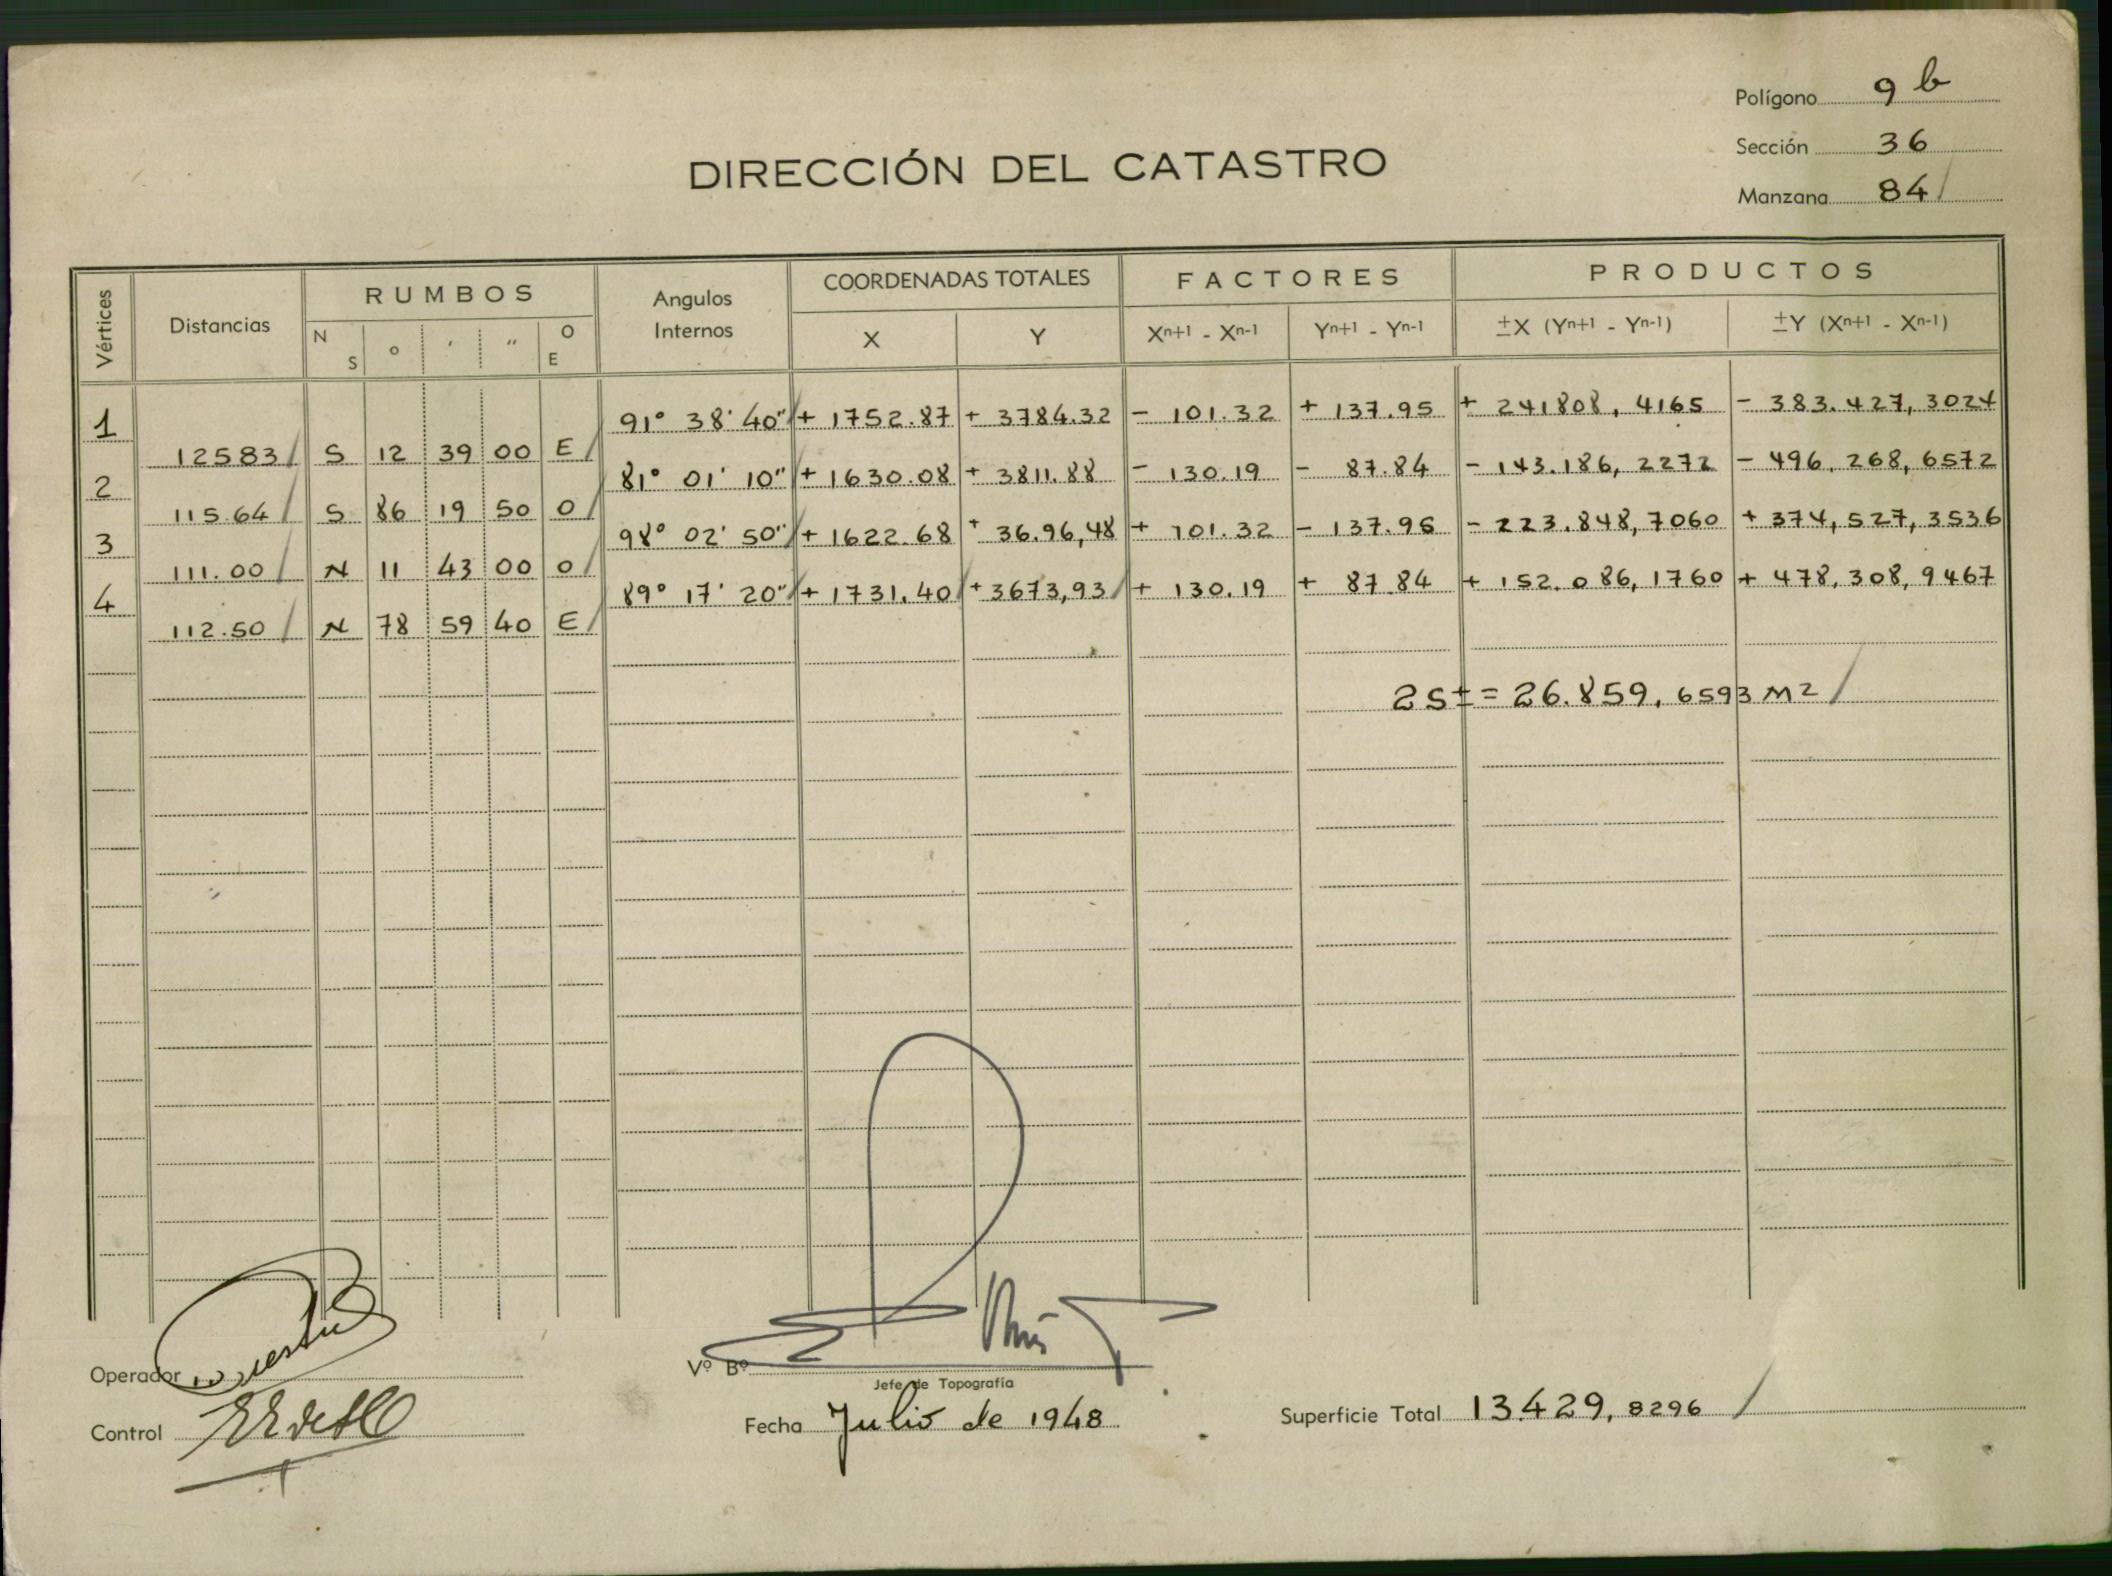 Polígono 9 b
Sección 36
Manzana 84
DIRECCIÓN DEL CATASTRO
Vértices Distancias RUMBOS Angulos Internos COORDENADAS TOTALES FACTORES PRODUCTOS
N S ° ' " O E X Y Xn+1 - Xn-1 Yn+1 - Yn-1 ±X (Yn+1 - Yn-1) ±Y (Xn+1 - Xn-1)
1 91° 38' 40" + 1752.87 + 3784.32 - 101.32 + 137.95 + 241808, 4165 - 383.427, 3024
125 83 S 12 39 00 E
2 81° 01' 10" + 1630.08 + 3811.88 - 130.19 - 87.84 - 143.186, 2272 - 496, 268, 6572
115.64 S 86 19 50 O
3 98° 02' 50" + 1622.68 + 36.96,48 + 101.32 - 137.95 - 223.848, 7060 + 374, 527, 3536
111.00 N 11 43 00 O
4 89° 17' 20" + 1731.40 + 3673,93 + 130.19 + 87.84 + 152.086, 1760 + 478, 308, 9467
112.50 N 78 59 40 E
2S± = 26.859, 6593 M2
Operador
Vº Bº
Jefe de Topografía
Control
Fecha Julio de 1948
Superficie Total 13.429, 8296